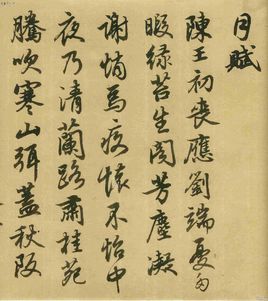 月賦
陳王初喪應劉端憂多
暇緑苔生閣芳塵凝
榭悄焉疚懷不怡中
夜乃清蘭路肅桂苑
騰吹寒山弭蓋秋阪